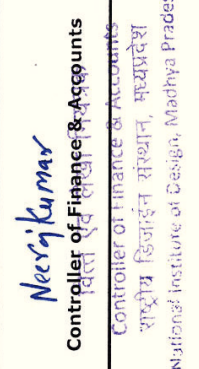 Neeraj Kumar
Controller of Finance & Accounts
वित्त एवं लेखा नियंत्रक
Controller of Finance & Accounts
राष्ट्रीय डिजाईन संस्थान, मध्यप्रदेश
National Institute of Design, Madhya Prades